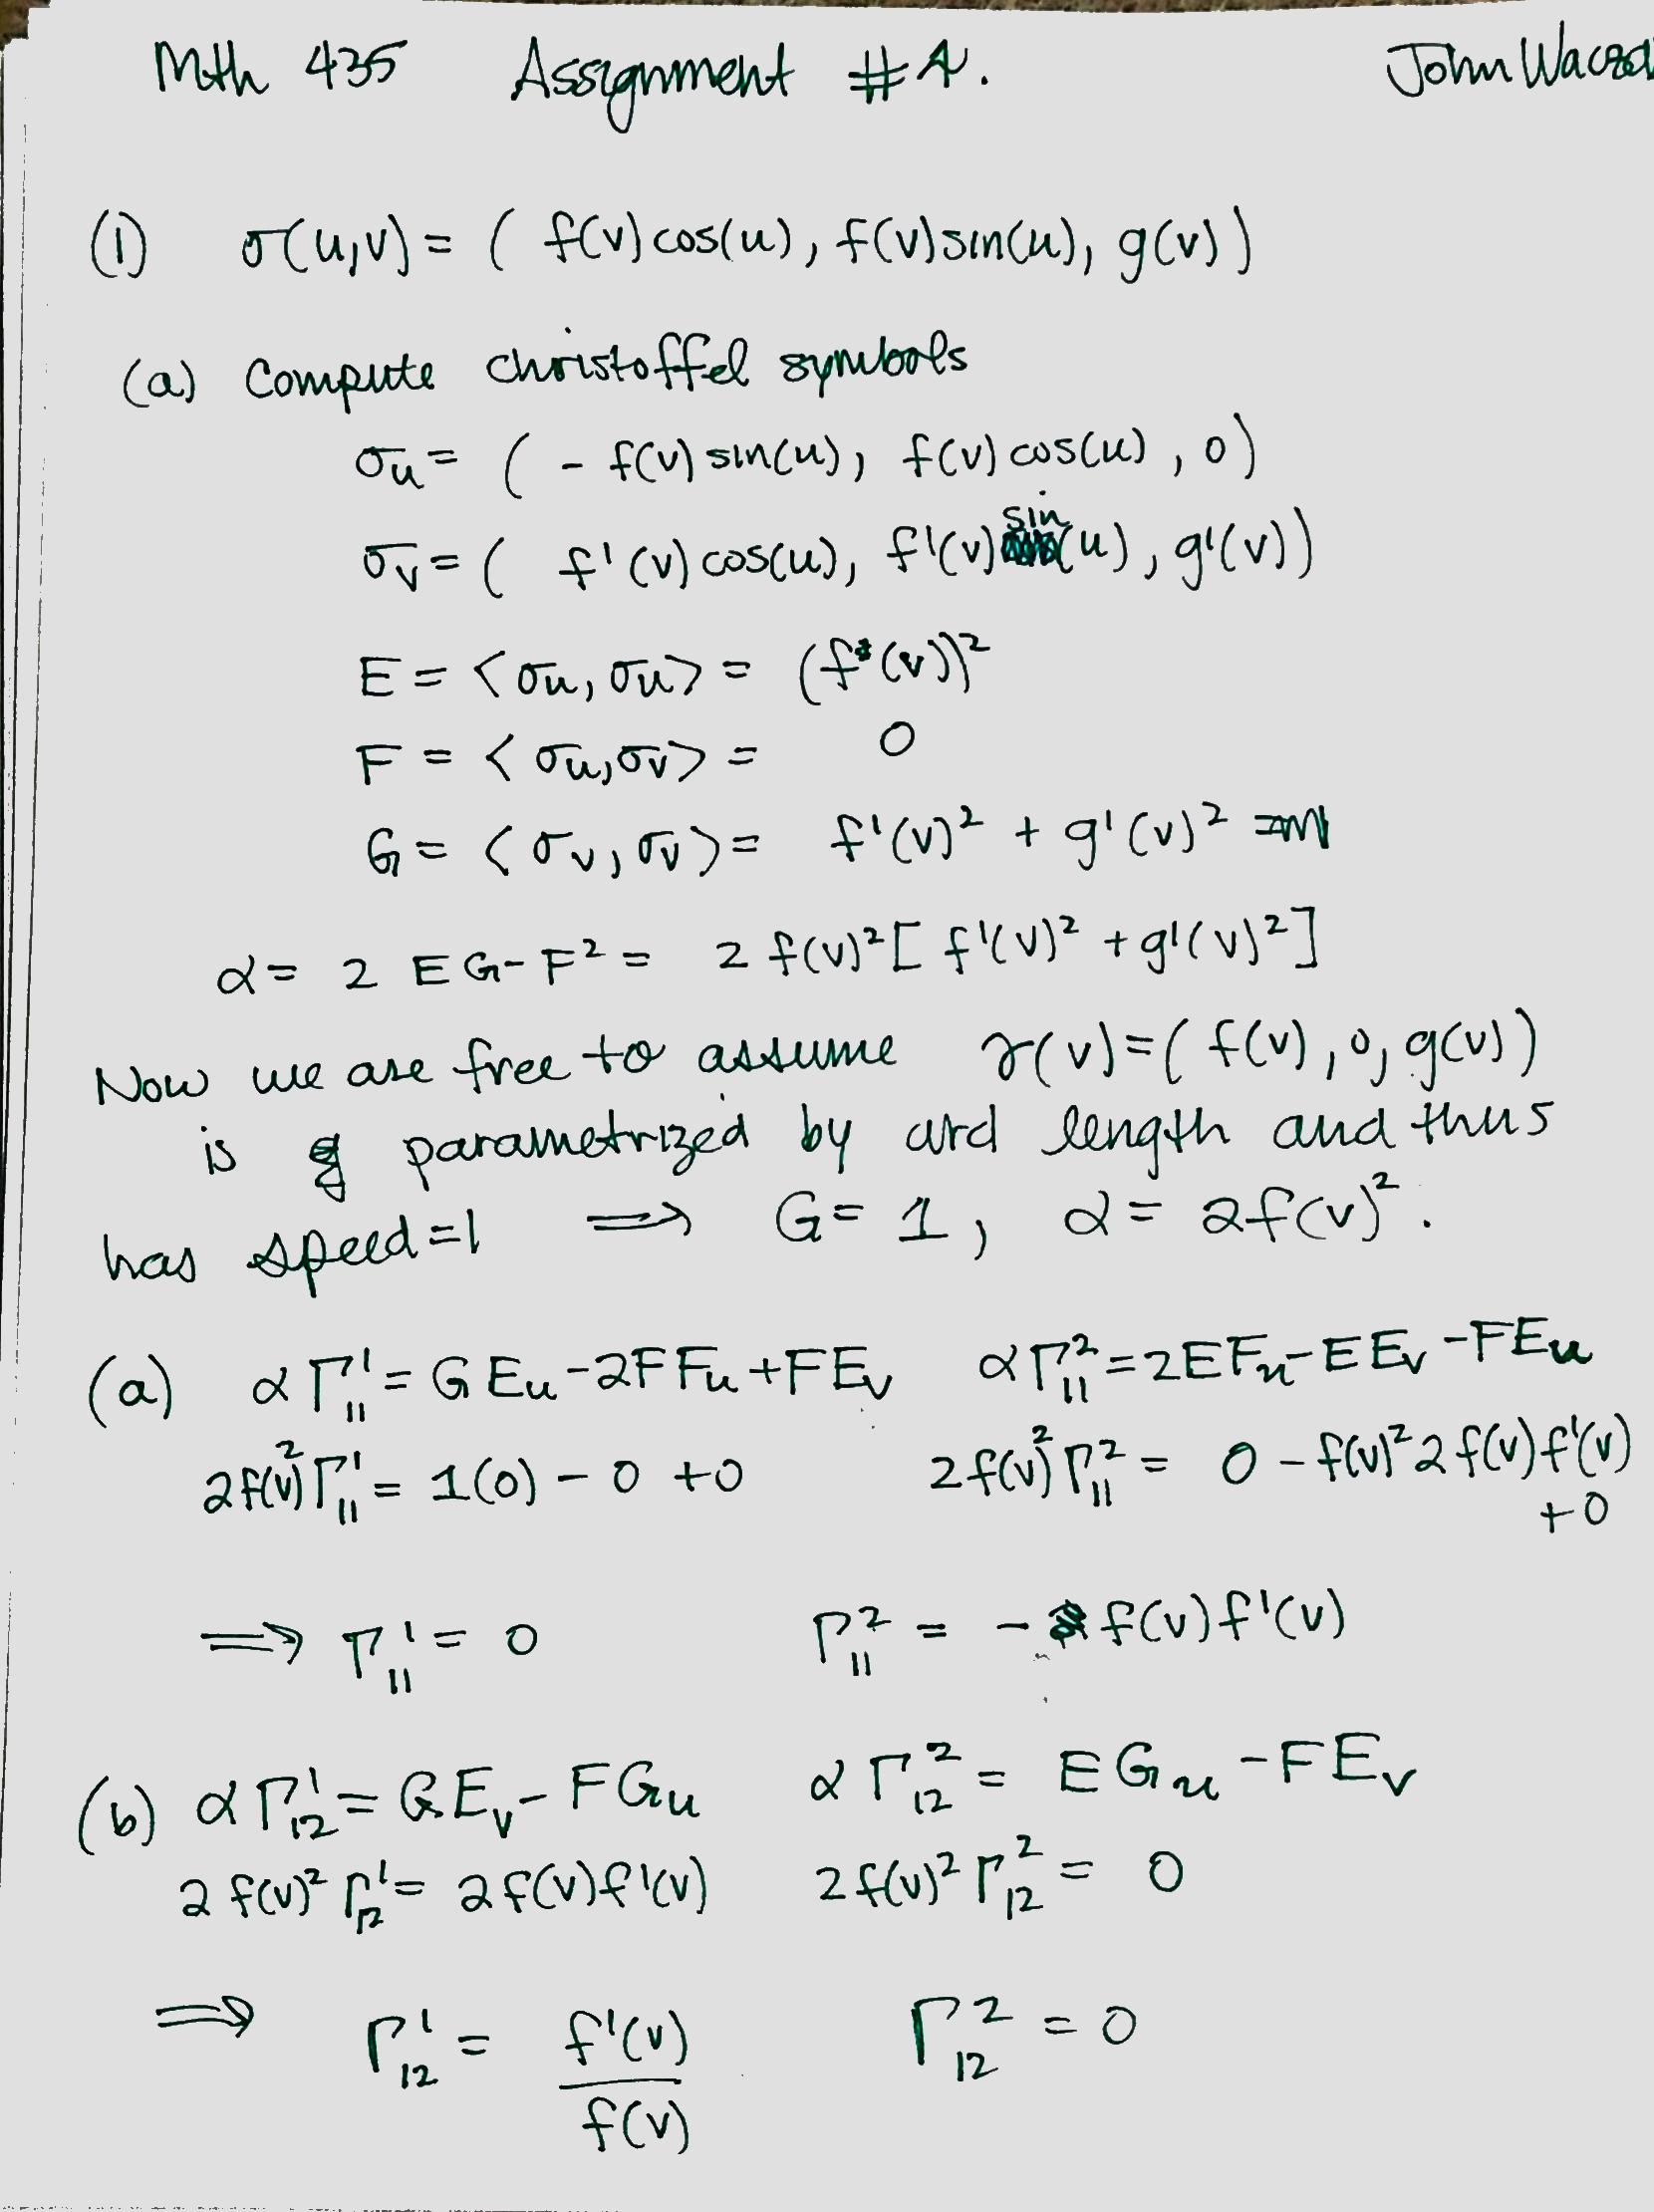 Mth 435 Assignment #4. John Wacza
(1) σ(u,v) = ( f(v) cos(u), f(v) sin(u), g(v) )
(a) Compute christoffel symbols
σu = ( - f(v) sin(u), f(v) cos(u), 0 )
σv = ( f'(v) cos(u), f'(v) sin(u), g'(v) )
E = <σu, σu> = (f(v))²
F = <σu, σv> = 0
G = <σv, σv> = f'(v)² + g'(v)²
α = 2 EG - F² = 2 f(v)² [ f'(v)² + g'(v)² ]
Now we are free to assume γ(v) = ( f(v), 0, g(v) )
is parametrized by ard length and thus
has speed = 1 ⟹ G = 1, α = 2f(v)².
(a) αΓ¹₁₁ = GEu - 2FFu + FEv αΓ²₁₁ = 2EFu - EEv - FEu
2f(v)²Γ¹₁₁ = 1(0) - 0 + 0 2f(v)²Γ²₁₁ = 0 - f(v)² 2f(v)f'(v)
+0
⟹ Γ¹₁₁ = 0 Γ²₁₁ = - f(v)f'(v)
(b) αΓ¹₁₂ = GEv - FGu αΓ²₁₂ = EGu - FEv
2f(v)²Γ¹₁₂ = 2f(v)f'(v) 2f(v)²Γ²₁₂ = 0
⟹ Γ¹₁₂ = f'(v)/f(v) Γ²₁₂ = 0